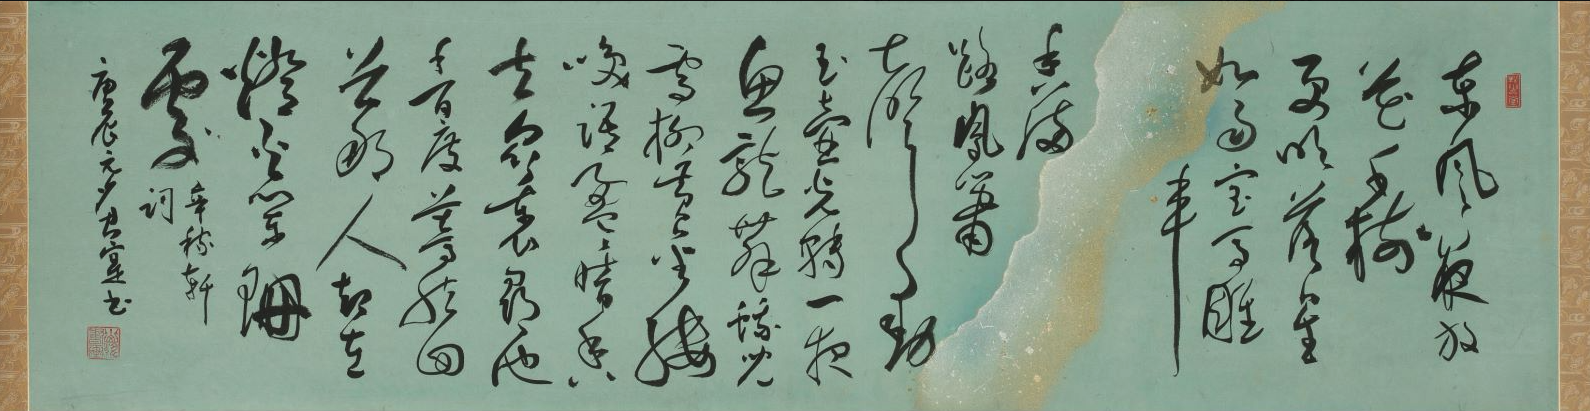 東風夜放
花千樹
更吹落星
如雨寶馬雕
車
香滿
路鳳簫
聲動
玉壺光轉一夜
魚龍舞蛾兒
雪柳黃金縷
笑語盈盈暗香
去眾裏尋他
千百度驀然回
首那人却在
燈火闌珊
處
辛稼軒
詞
庚辰元夕書